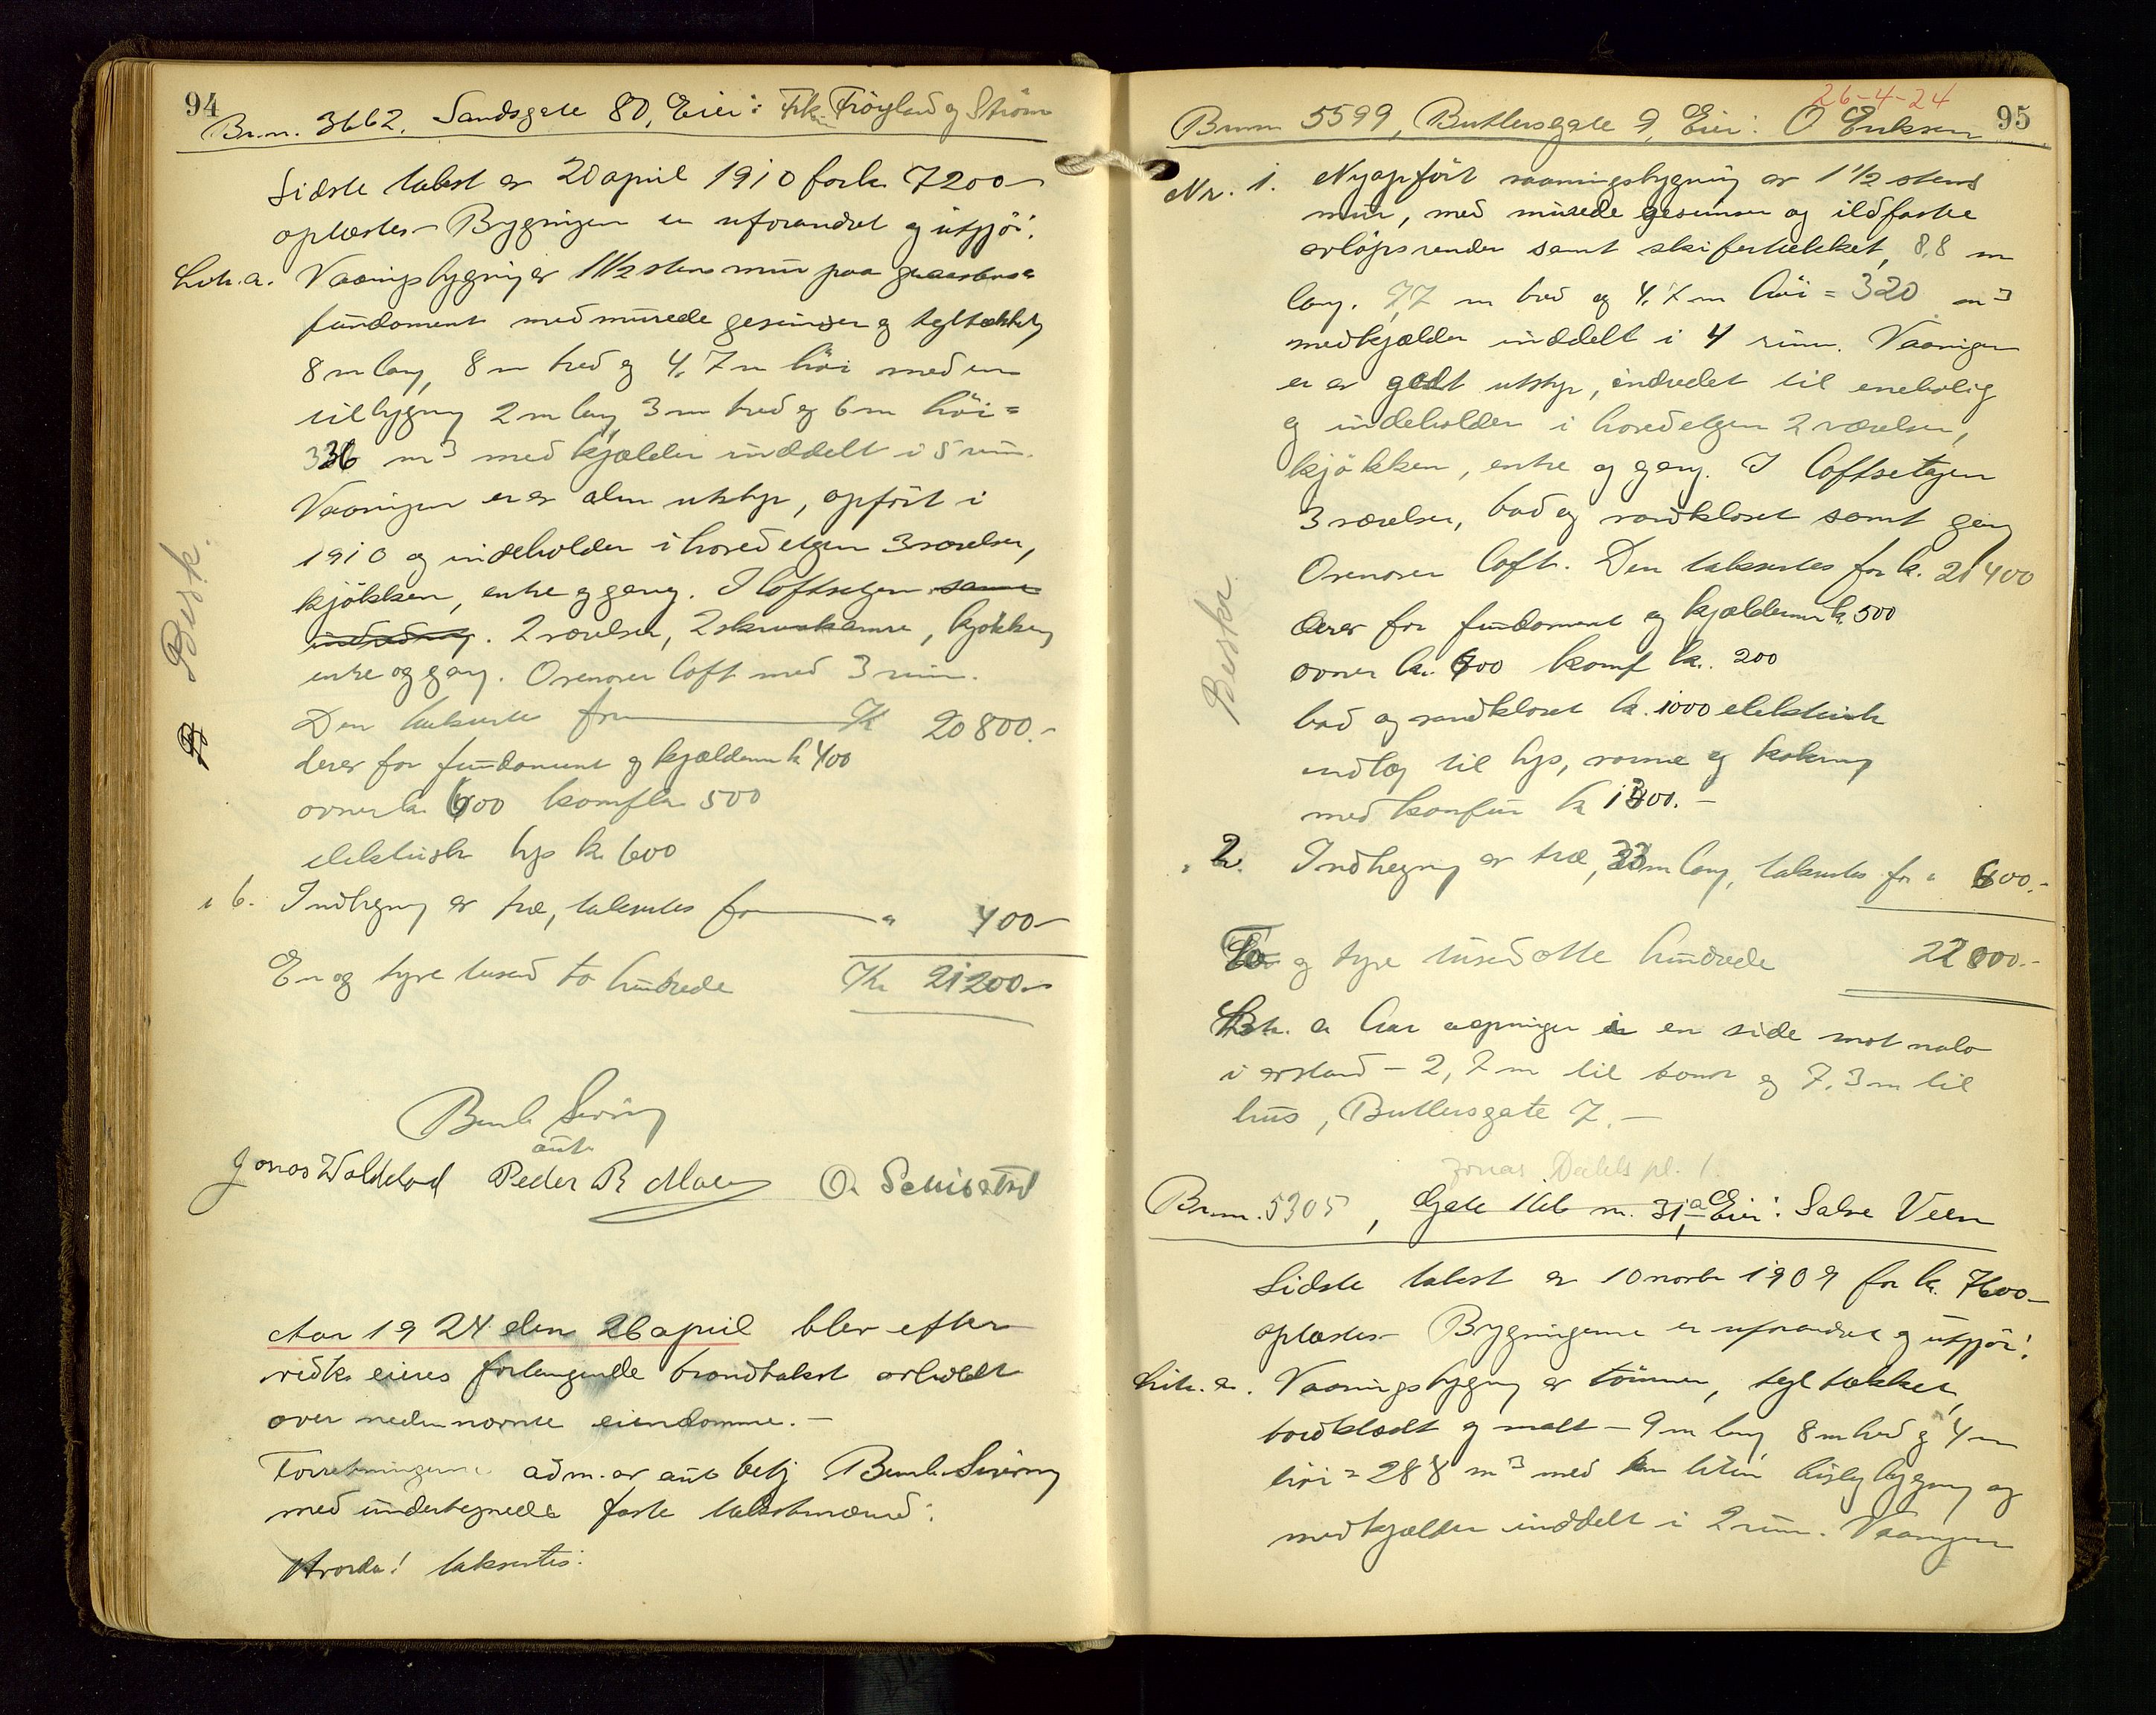 94
Br.n. 3662. Sandsgate 80, Eier: Frkn Fröyland og Ström
Sidste takst er 20 april 1910 for kr 7200 -
oplæstes - Bygningen er uforandret og utgjör:
Litr. a. Vaaningsbygning er 1 1/2 stens mur paa graastens
fundament med murede gesimser og tegltækket,
8 m lang, 8 m bred og 4,7 m höi med en
tilbygning 2 m lang 3 m bred og 6 m höi =
336 m3 med kjælder inddelt i 5 rum.
Vaaningen er av alm utstyr, opfört i
1910 og indeholder i hovedetgen 3 værelser,
kjökken, entre og gang. I loftsetgen samme
indredning. 2 værelser, 2 skraakamre, kjökken,
entre og gang. Ovenover loft med 3 rum.
Den taksertes for Kr 20 800.-
derav for fundament og kjældermur kr 400
ovner kr 600 komf kr 500
elektrisk lys kr 600
" b. Indhegning av træ, taksertes for " 400 -
En og tyve tusend to hundrede Kr 21 200 -
Besk.
Bernh. Sivring
aut.
Jonas Waldeland Peder R Moen O. Schibsted
Aar 1924 den 26 april blev efter
vedk. eieres forlangende brandtakst avholdt
over nedennævnte eiendomme. -
Forretningerne adm. av aut betj Bernh. Sivring
med undertegnede faste takstmænd.
Hvorda! taksertes:
26-4-24
95
Br.nr. 5599, Butlersgate 9, Eier: O Eriksen
Nr. 1. Nyopfört vaaningsbygning av 1 1/2 stens
mur, med murede gesimser og ildfaste
avlöpsrender samt skifertækket, 8,8 m
lang. 7,7 m bred og 4,7 m höi = 320 m3
med kjælder inddelt i 4 rum. Vaaningen
er av godt utstyr, indredet til enebolig
og indeholder i hovedetgen 2 værelser,
kjökken, entre og gang. I loftsetagen
3 værelser, bad og vandkloset samt gang
Ovenover loft. Den taksertes for kr. 21 400
derav for fundament og kjældermur kr. 500
ovner kr. 600 komf kr. 200
bad og vandkloset kr. 1000 elektrisk
indlæg til lys, varme og kokning
med komfur kr 1300. -
Beskr.
" 2. Indhegning av træ, 33 m lang, taksertes for " 600.-
To og tyve tusend hundrede 22 000.-
Litr. a har aapninger i en side mot nabo
i avstand - 2,7 m til tomt og 7,3 m til
hus, Butlersgate 7. -
Jonas Dahls pl. 1.
Br.nr. 5305, Gate 166 nr. 31a Eier: Salve Veen
Sidste takst er 10 novbr 1909 for kr. 7600 -
oplæstes - Bygningerne er uforandret og utgjör:
Litr. a. Vaaningsbygning av tömmer, tegltækket,
bordklædt og malt - 9 m lang 8 m bred og 4 m
höi = 288 m3 med en liten bislagbygning og
med kjælder inddelt i 2 rum. Vaaningen